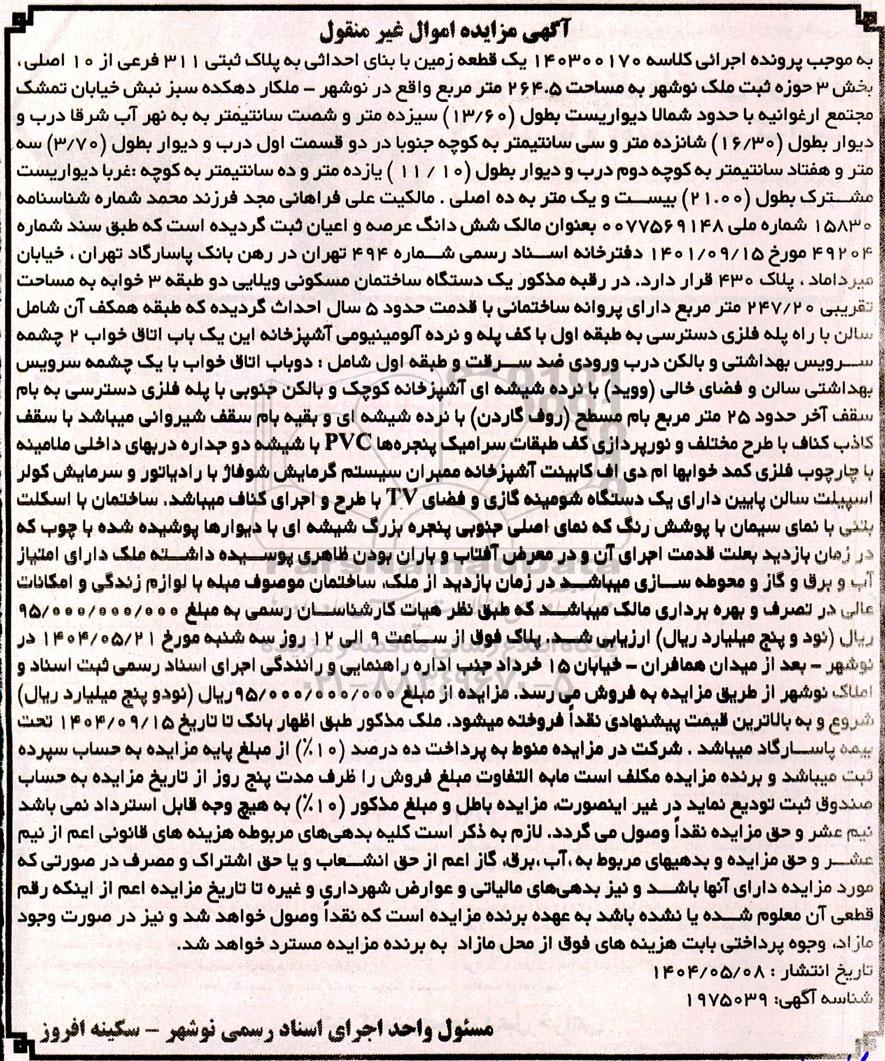 آگهی مزایده اموال غیر منقول
به موجب پرونده اجرائی کلاسه ۱۴۰۳۰۰۱۷۰ یک قطعه زمین با بنای احداثی به پلاک ثبتی ۳۱۱ فرعی از ۱۰ اصلی،
بخش ۳ حوزه ثبت ملک نوشهر به مساحت ۲۶۴.۵ متر مربع واقع در نوشهر - ملکار دهکده سبز نبش خیابان تمشک
مجتمع ارغوانیه با حدود شمالا دیواریست بطول (۱۳/۶۰) سیزده متر و شصت سانتیمتر به به نهر آب شرقا درب و
دیوار بطول (۱۶/۳۰) شانزده متر و سی سانتیمتر به کوچه جنوبا در دو قسمت اول درب و دیوار بطول (۳/۷۰) سه
متر و هفتاد سانتیمتر به کوچه دوم درب و دیوار بطول (۱۰/ ۱۱ ) یازده متر و ده سانتیمتر به کوچه :غربا دیواریست
مشترک بطول (۲۱.۰۰) بیست و یک متر به ده اصلی . مالکیت علی فراهانی مجد فرزند محمد شماره شناسنامه
۱۵۸۳۰ شماره ملی ۰۰۷۷۵۶۹۱۴۸ بعنوان مالک شش دانگ عرصه و اعیان ثبت گردیده است که طبق سند شماره
۴۹۲۰۴ مورخ ۱۴۰۱/۰۹/۱۵ دفترخانه اسناد رسمی شماره ۴۹۴ تهران در رهن بانک پاسارگاد تهران ، خیابان
میرداماد ، پلاک ۴۳۰ قرار دارد. در رقبه مذکور یک دستگاه ساختمان مسکونی ویلایی دو طبقه ۳ خوابه به مساحت
تقریبی ۲۴۷/۲۰ متر مربع دارای پروانه ساختمانی با قدمت حدود ۵ سال احداث گردیده که طبقه همکف آن شامل
سالن با راه پله فلزی دسترسی به طبقه اول با کف پله و نرده آلومینیومی آشپزخانه این یک باب اتاق خواب ۲ چشمه
سرویس بهداشتی و بالکن درب ورودی ضد سرقت و طبقه اول شامل : دوباب اتاق خواب با یک چشمه سرویس
بهداشتی سالن و فضای خالی (ووید) با نرده شیشه ای آشپزخانه کوچک و بالکن جنوبی با پله فلزی دسترسی به بام
سقف آخر حدود ۲۵ متر مربع بام مسطح (روف گاردن) با نرده شیشه ای و بقیه بام سقف شیروانی میباشد با سقف
کاذب کناف با طرح مختلف و نورپردازی کف طبقات سرامیک پنجره‌ها PVC با شیشه دو جداره دربهای داخلی ملامینه
با چارچوب فلزی کمد خوابها ام دی اف کابینت آشپزخانه ممبران سیستم گرمایش شوفاژ با رادیاتور و سرمایش کولر
اسپیلت سالن پایین دارای یک دستگاه شومینه گازی و فضای TV با طرح و اجرای کناف میباشد. ساختمان با اسکلت
بتنی با نمای سیمان با پوشش رنگ که نمای اصلی جنوبی پنجره بزرگ شیشه ای با دیوارها پوشیده شده با چوب که
در زمان بازدید بعلت قدمت اجرای آن و در معرض آفتاب و باران بودن ظاهری پوسیده داشته ملک دارای امتیاز
آب و برق و گاز و محوطه سازی میباشد در زمان بازدید از ملک، ساختمان موصوف مبله با لوازم زندگی و امکانات
عالی در تصرف و بهره برداری مالک میباشد که طبق نظر هیات کارشناسان رسمی به مبلغ ۹۵/۰۰۰/۰۰۰/۰۰۰
ریال (نود و پنج میلیارد ریال) ارزیابی شد. پلاک فوق از ساعت ۹ الی ۱۲ روز سه شنبه مورخ ۱۴۰۴/۰۵/۲۱ در
نوشهر - بعد از میدان همافران - خیابان ۱۵ خرداد جنب اداره راهنمایی و رانندگی اجرای اسناد رسمی ثبت اسناد و
املاک نوشهر از طریق مزایده به فروش می رسد. مزایده از مبلغ ۹۵/۰۰۰/۰۰۰/۰۰۰ریال (نودو پنج میلیارد ریال)
شروع و به بالاترین قیمت پیشنهادی نقداً فروخته میشود. ملک مذکور طبق اظهار بانک تا تاریخ ۱۴۰۴/۰۹/۱۵ تحت
بیمه پاسارگاد میباشد . شرکت در مزایده منوط به پرداخت ده درصد (۱۰٪) از مبلغ پایه مزایده به حساب سپرده
ثبت میباشد و برنده مزایده مکلف است مابه التفاوت مبلغ فروش را ظرف مدت پنج روز از تاریخ مزایده به حساب
صندوق ثبت تودیع نماید در غیر اینصورت، مزایده باطل و مبلغ مذکور (۱۰٪) به هیچ وجه قابل استرداد نمی باشد
نیم عشر و حق مزایده نقداً وصول می گردد. لازم به ذکر است کلیه بدهی‌های مربوطه هزینه های قانونی اعم از نیم
عشر و حق مزایده و بدهیهای مربوط به،آب،برق، گاز اعم از حق انشعاب و یا حق اشتراک و مصرف در صورتی که
مورد مزایده دارای آنها باشد و نیز بدهی‌های مالیاتی و عوارض شهرداری و غیره تا تاریخ مزایده اعم از اینکه رقم
قطعی آن معلوم شده یا نشده باشد به عهده برنده مزایده است که نقداً وصول خواهد شد و نیز در صورت وجود
مازاد، وجوه پرداختی بابت هزینه های فوق از محل مازاد به برنده مزایده مسترد خواهد شد.
تاریخ انتشار : ۱۴۰۴/۰۵/۰۸
شناسه آگهی: ۱۹۷۵۰۳۹
مسئول واحد اجرای اسناد رسمی نوشهر - سکینه افروز